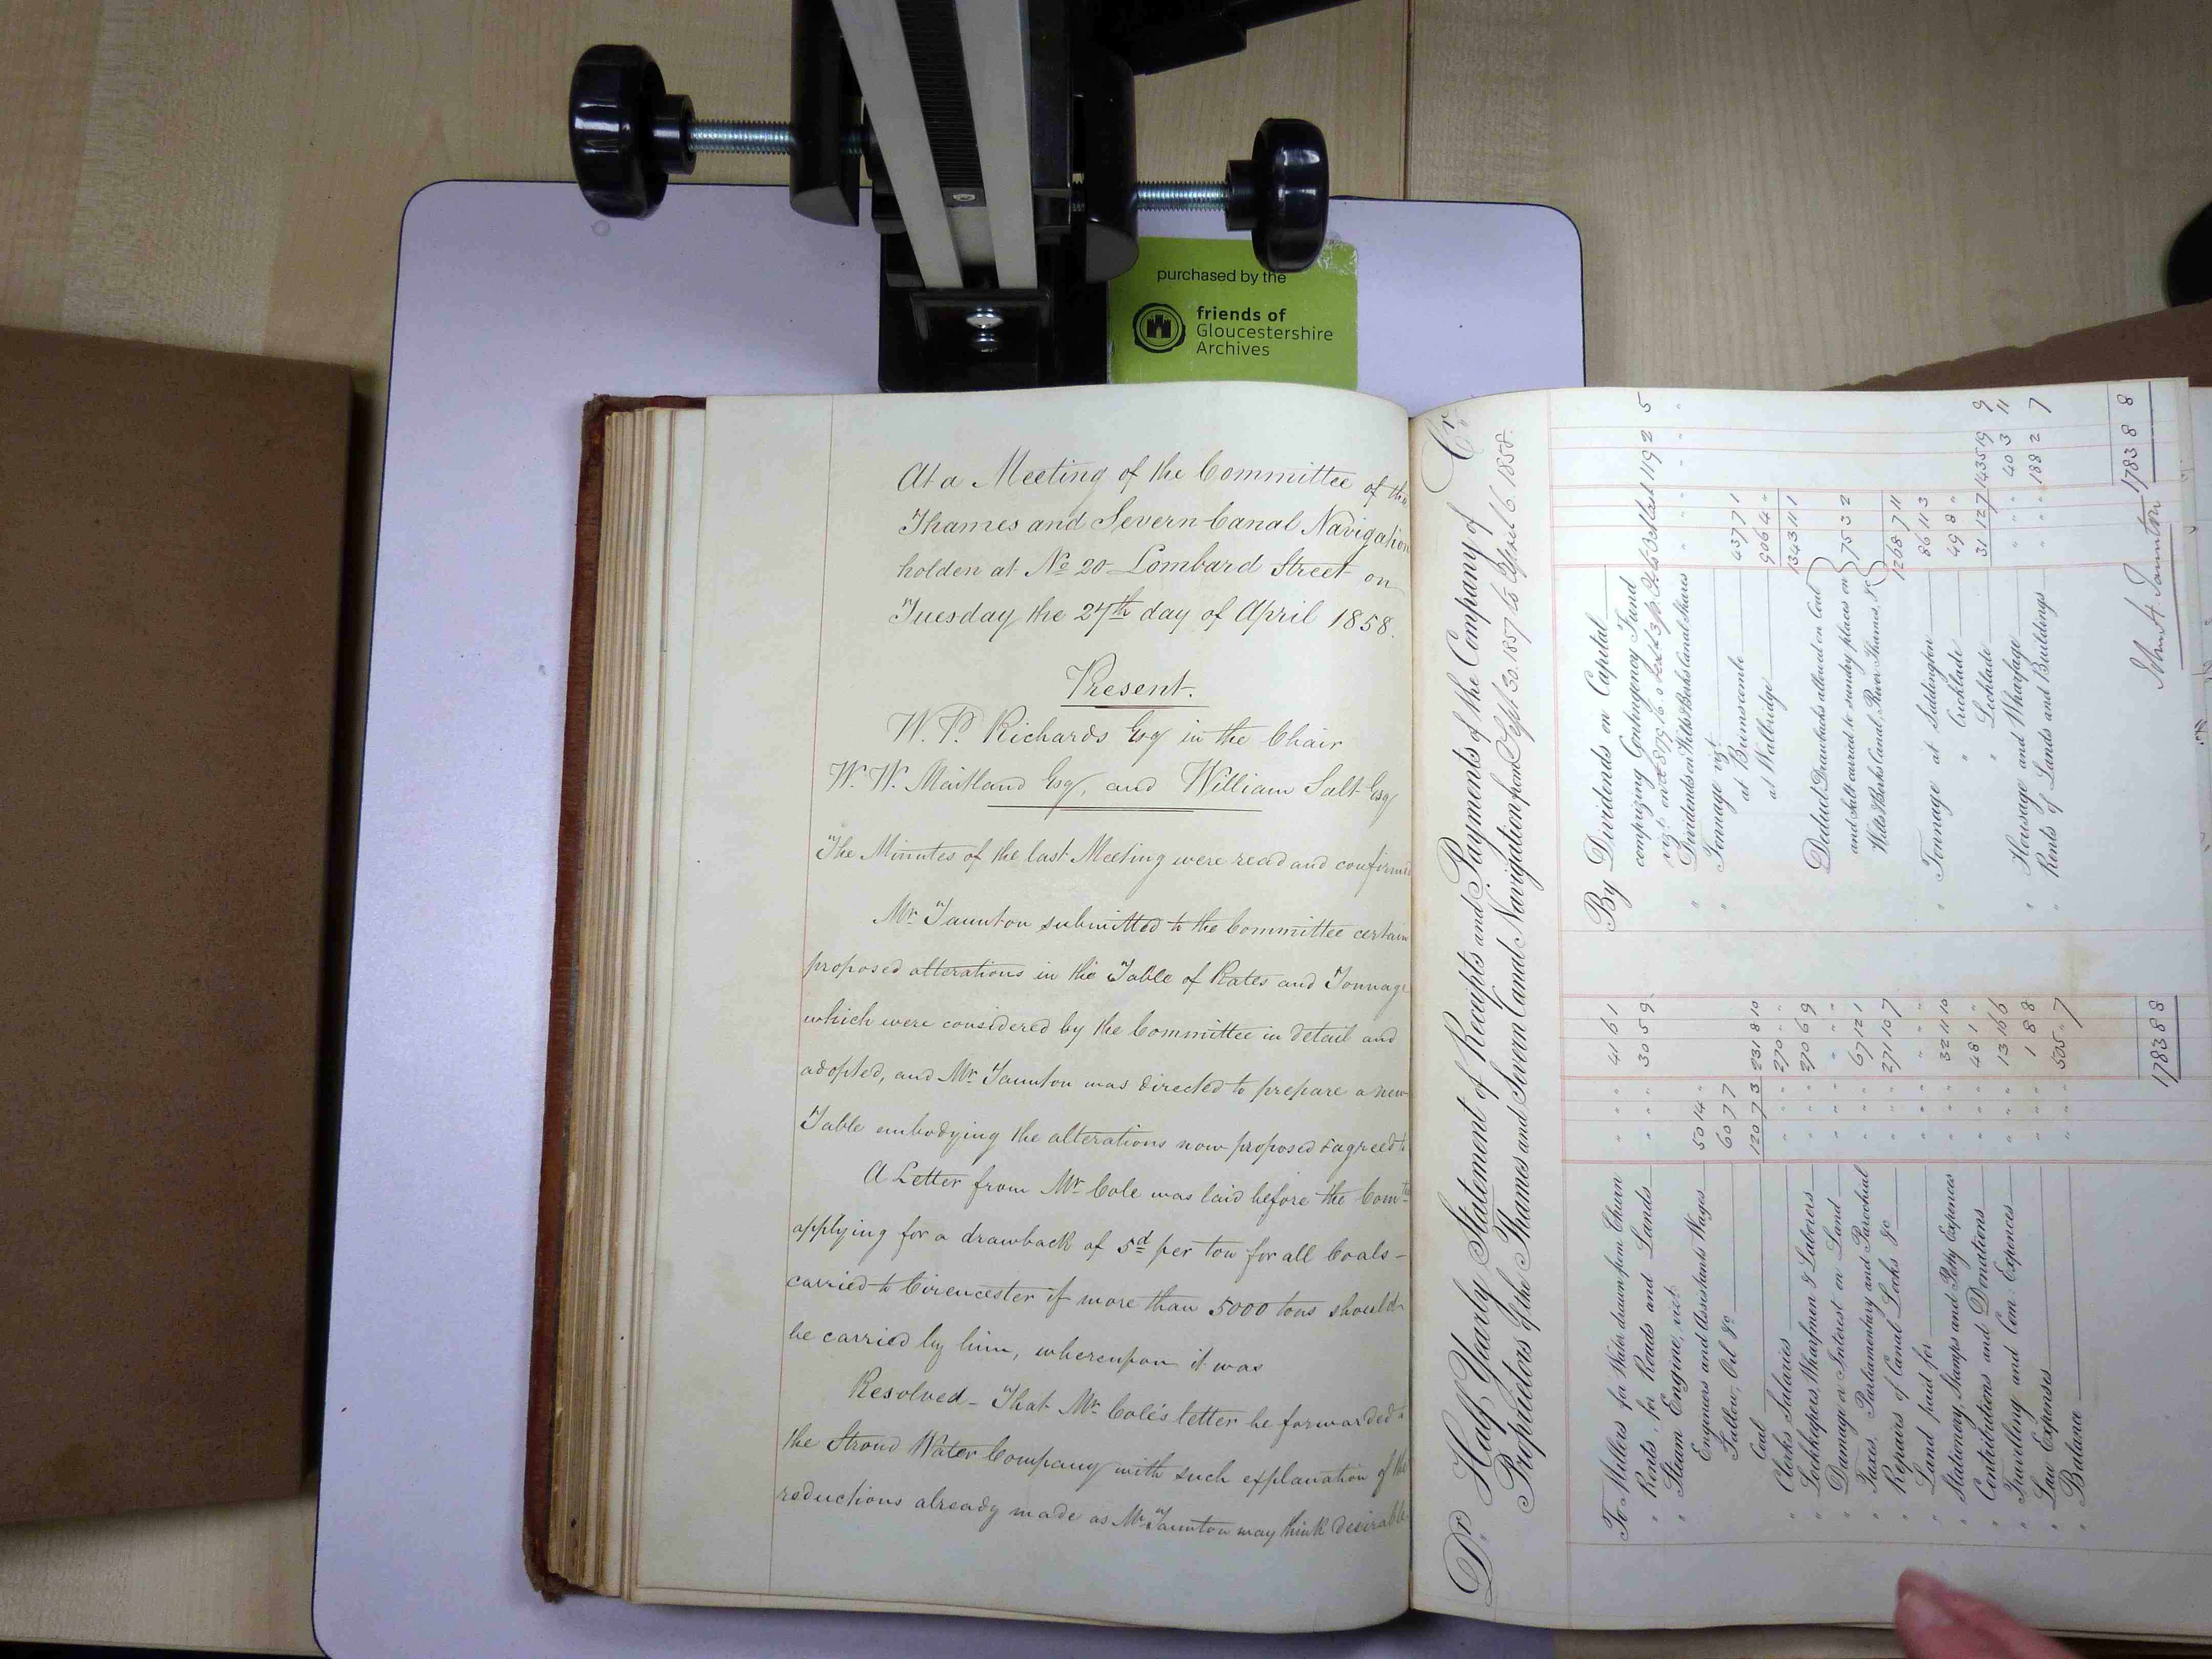 purchased by the
friends of
Gloucestershire
Archives
At a Meeting of the Committee of the
Thames and Severn Canal Navigation
holden at No 20 Lombard Street on
Tuesday the 27th day of April 1858.
Present.
W. P. Richards Esq in the Chair
W. W. Maitland Esq, and William Salt Esq
The Minutes of the last Meeting were read and confirmed
Mr Taunton submitted to the Committee certain
proposed alterations in the Table of Rates and Tonnage
which were considered by the Committee in detail and
adopted, and Mr Taunton was directed to prepare a new
Table embodying the alterations now proposed & agreed to
A Letter from Mr Cole was laid before the Comtee
applying for a drawback of 5d per ton for all Coals
carried to Cirencester if more than 5000 tons should
be carried by him, whereupon it was
Resolved - That Mr Cole's letter be forwarded to
the Stroud Water Company with such explanation of the
reductions already made as Mr Taunton may think desirable
Dr. Half Yearly Statement of Receipts and Payments of the Company of Cr.
Proprietors of the Thames and Severn Canal Navigation from Sept 30. 1857 to April 6. 1858.
To Millers for Water drawn from Churn " " " 41 6 1
" Rents, for Roads and Lands " " " 30 5 9
" Steam Engine, vizt
Engineers and Assistants Wages 50 14 "
Tallow, Oil &c 60 7 7
Coal 120 7 3 231 8 10
" Clerks Salaries " " " 270 " "
" Lockkeepers, Wharfmen & Laborers " " " 270 6 9
" Damage or Interest on Land " " " " " "
" Taxes, Parliamentary and Parochial " " " 67 12 1
" Repairs of Canal Locks &c " " " 271 10 7
" Land paid for " " " " " "
" Stationery, Stamps and Petty Expences " " " 32 11 10
" Contributions and Donations " " " 48 1 "
" Travelling and Com: Expences " " " 13 16 6
" Law Expenses " " " 1 8 8
" Balance " " " 505 " 7
1783 8 8
By Dividends on Capital
comprizing Contingency Fund
119 2 5
" Dividends on Wilts & Berks Canal Shares " " " " " "
" Tonnage vizt
at Brimscombe 437 7 1
at Wallbridge 906 4 "
1343 11 1
Deduct Drawbacks allowed on Coal
and Salt carried to sundry places on
Wilts & Berks Canal, River Thames, &c 75 3 2
1268 7 11
" Tonnage at Siddington 86 11 3
" Cricklade 49 8 "
" Lechlade 31 12 7 1435 19 9
" Housage and Wharfage " " " 40 3 11
" Rents of Lands and Buildings " " " 188 2 7
1783 8 8
John H. Taunton